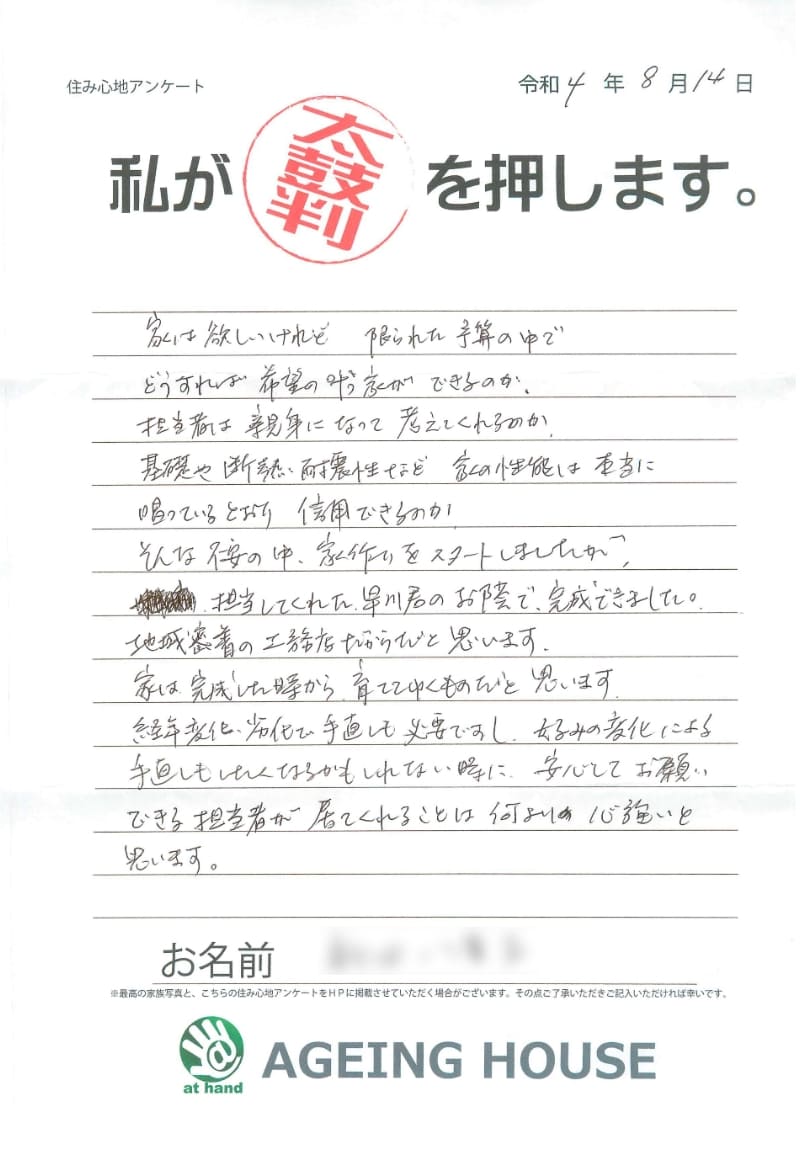 住み心地アンケート
令和4年8月14日
私が太鼓判を押します。
家は欲しいけれど 限られた予算の中で
どうすれば希望の叶う家ができるのか、
担当者は親身になって考えてくれるのか、
基礎や断熱・耐震性など 家の性能は本当に
唱っているとおり 信用できるのか、
そんな不安の中、家作りをスタートしましたが、
担当してくれた早川君のお陰で、完成できました。
地域密着の工務店だからだと思います。
家は完成した時から、育ててゆくものだと思います。
経年変化、劣化で手直しも必要ですし、好みの変化による
手直しもしたくなるかもしれない時に、安心してお願い
できる担当者が居てくれることは何よりも心強いと
思います。
お名前
※最高の家族写真と、こちらの住み心地アンケートをHPに掲載させていただく場合がございます。その点ご了承いただきご記入いただければ幸いです。
@
at hand
AGEING HOUSE